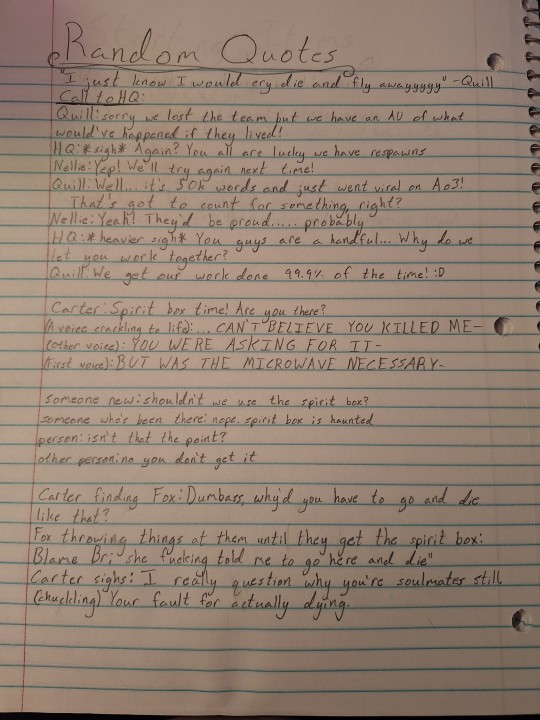 Random Quotes
"I just know I would cry die and fly awayyyyy" -Quill
Call to HQ:
Quill: sorry we lost the team but we have an AU of what
would've happened if they lived!
HQ: *sigh* Again? You all are lucky we have respawns
Nellie: Yep! We'll try again next time!
Quill: Well... it's 50k words and just went viral on Ao3!
That's got to count for something, right?
Nellie: Yeah! They'd be proud..... probably
HQ: *heavier sigh* You guys are a handful... Why do we
let you work together?
Quill: We get our work done 99.9% of the time! :D
Carter: Spirit box time! Are you there?
(A voice crackling to life): ... CAN'T BELIEVE YOU KILLED ME-
(other voice): YOU WERE ASKING FOR IT-
(first voice): BUT WAS THE MICROWAVE NECESSARY-
someone new: shouldn't we use the spirit box?
someone who's been there: nope. spirit box is haunted
person: isn't that the point?
other person: no you don't get it
Carter finding Fox: Dumbass, why'd you have to go and die
like that?
Fox throwing things at them until they get the spirit box:
Blame Bri, she fucking told me to go here and die"
Carter sighs: I really question why you're soulmates still.
(chuckling) Your fault for actually dying.